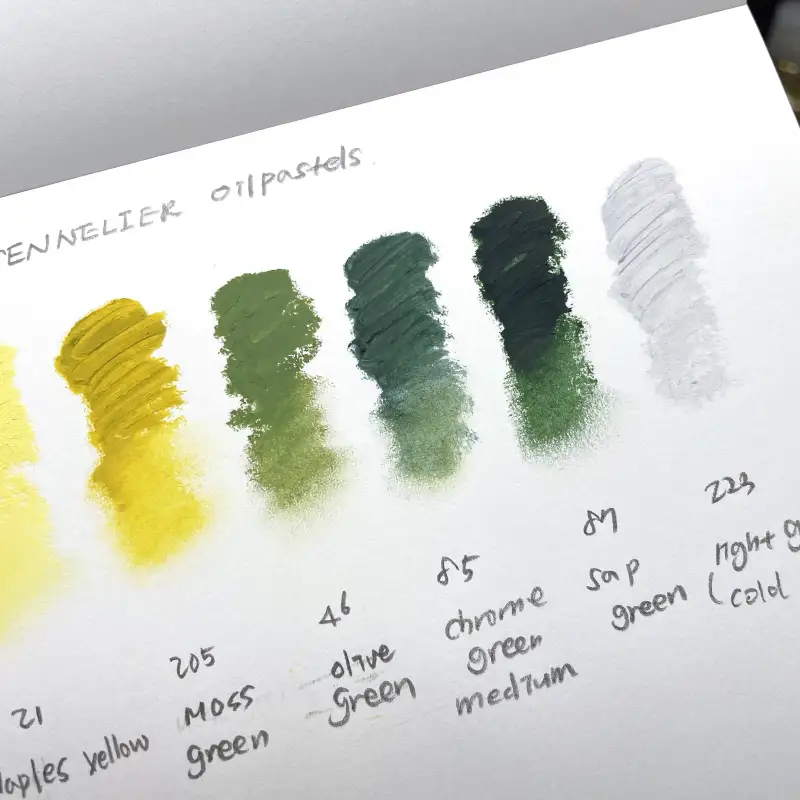 ENNELIER oilpastels.
21
aples yellow
205
moss
green
46
olive
green
85
chrome
green
medium
87
sap
green
223
light g
(cold